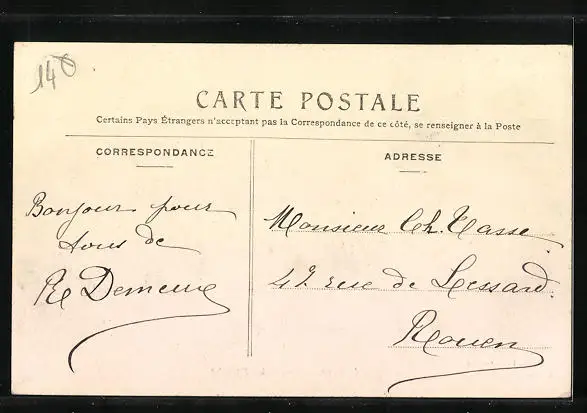 140
CARTE POSTALE
Certains Pays Étrangers n'acceptent pas la Correspondance de ce côté, se renseigner à la Poste
CORRESPONDANCE
ADRESSE
Bonjour pour
tous de
Demeure
Monsieur Ch. Tasse
42 rue de Lessard
Rouen